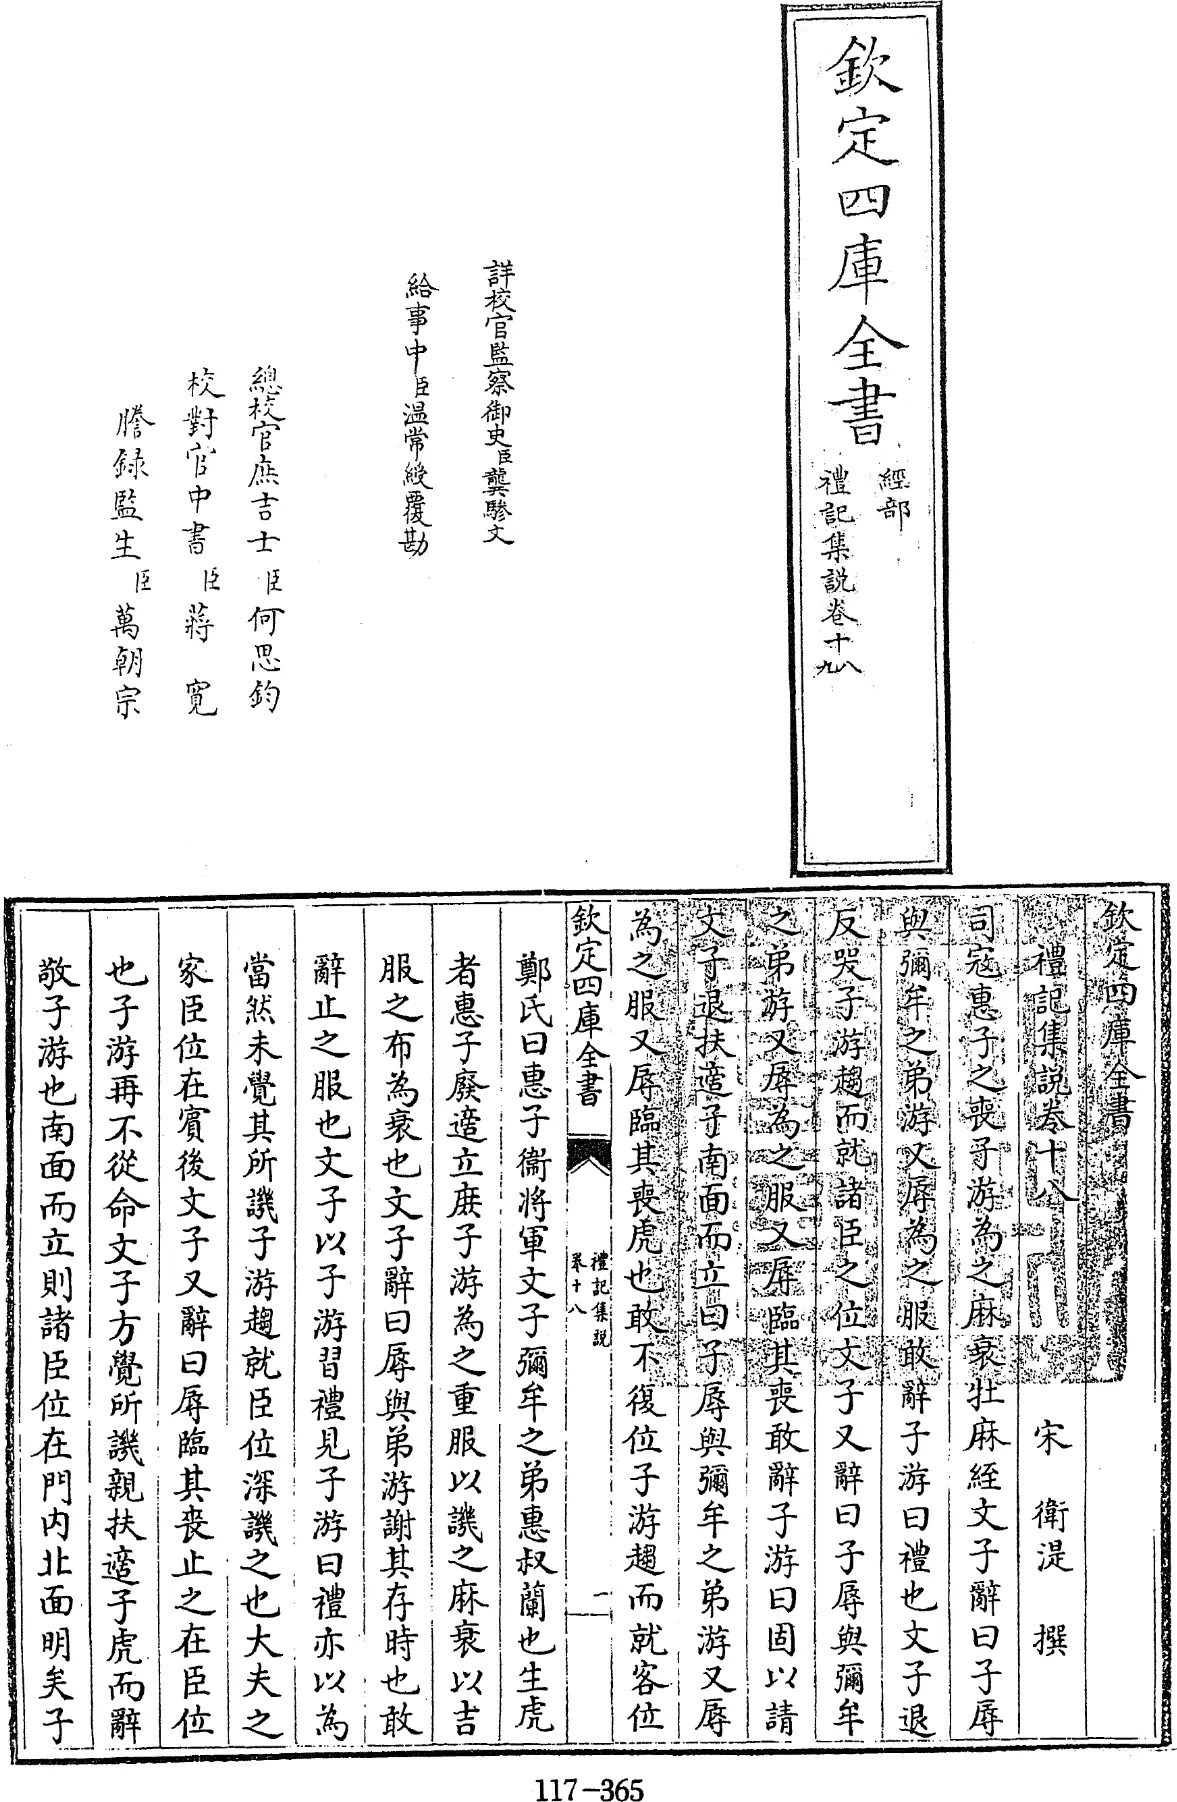 欽定四庫全書
經部
禮記集説卷十八
九
詳校官監察御史臣龔驂文
給事中臣温常綬覆勘
總校官庶吉士臣何思鈞
校對官中書臣蔣寛
謄録監生臣萬朝宗
欽定四庫全書
禮記集説卷十八
宋 衛湜 撰
司寇惠子之喪子游為之麻衰牡麻絰文子辭曰子辱
與彌牟之弟游又辱為之服敢辭子游曰禮也文子退
反哭子游趨而就諸臣之位文子又辭曰子辱與彌牟
之弟游又辱為之服又辱臨其喪敢辭子游曰固以請
文子退扶適子南面而立曰子辱與彌牟之弟游又辱
為之服又辱臨其喪虎也敢不復位子游趨而就客位
欽定四庫全書
禮記集説
卷十八
一
鄭氏曰惠子衞將軍文子彌牟之弟惠叔蘭也生虎
者惠子廢適立庶子游為之重服以譏之麻衰以吉
服之布為衰也文子辭曰辱與弟游謝其存時也敢
辭止之服也文子以子游習禮見子游曰禮亦以為
當然未覺其所譏子游趨就臣位深譏之也大夫之
家臣位在賓後文子又辭曰辱臨其喪止之在臣位
也子游再不從命文子方覺所譏親扶適子虎而辭
敬子游也南面而立則諸臣位在門内北面明矣子
117-365